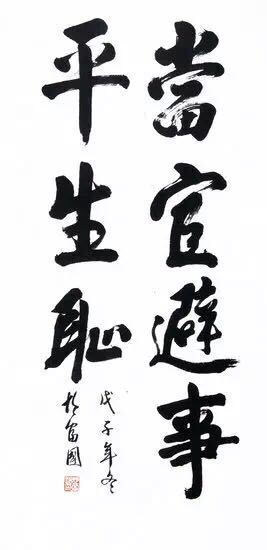 當官避事
平生恥
戊子年冬
富國